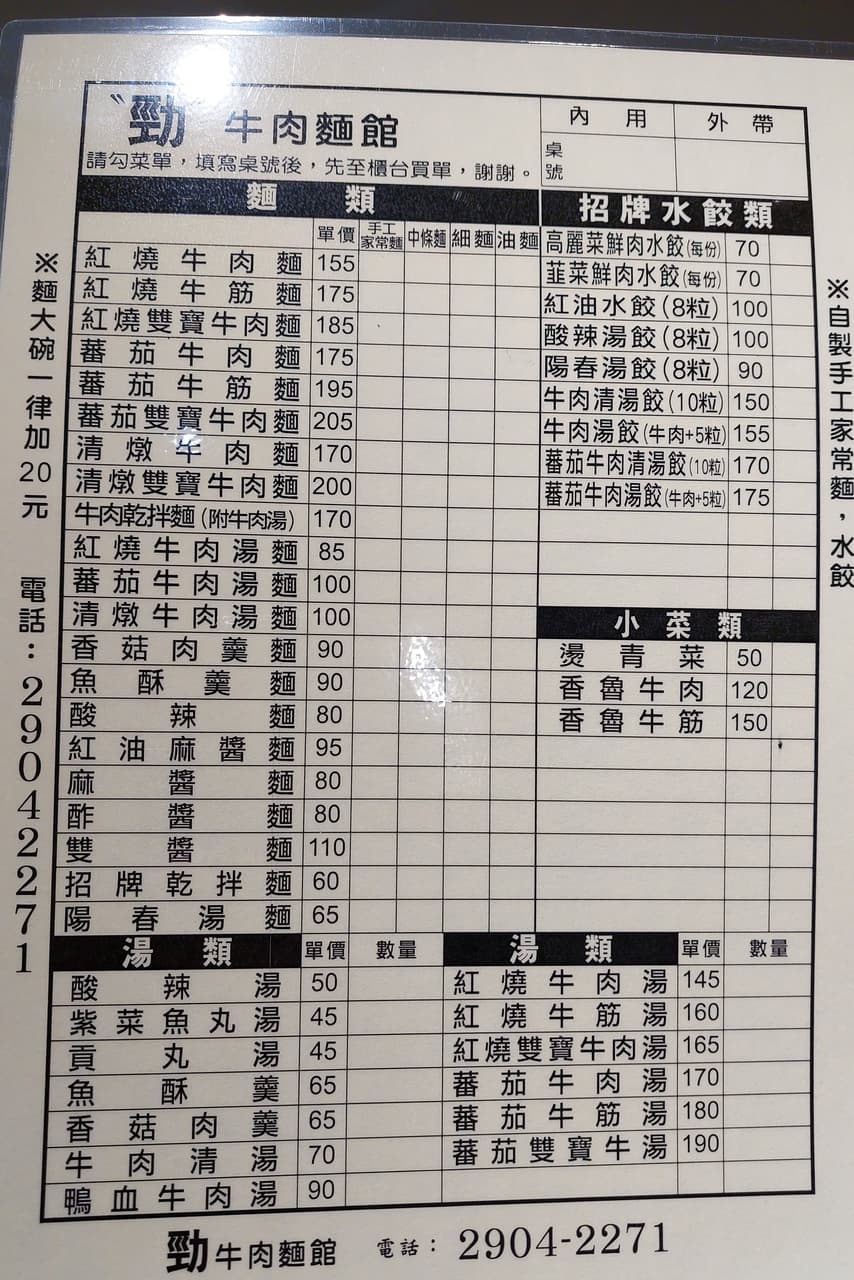 〝勁〞牛肉麵館
請勾菜單，填寫桌號後，先至櫃台買單，謝謝。
內用 外帶
桌號
麵類
單價 手工家常麵 中條麵 細麵 油麵
紅燒牛肉麵 155
紅燒牛筋麵 175
紅燒雙寶牛肉麵 185
蕃茄牛肉麵 175
蕃茄牛筋麵 195
蕃茄雙寶牛肉麵 205
清燉牛肉麵 170
清燉雙寶牛肉麵 200
牛肉乾拌麵(附牛肉湯) 170
紅燒牛肉湯麵 85
蕃茄牛肉湯麵 100
清燉牛肉湯麵 100
香菇肉羹麵 90
魚酥羹麵 90
酸辣麵 80
紅油麻醬麵 95
麻醬麵 80
酢醬麵 80
雙醬麵 110
招牌乾拌麵 60
陽春湯麵 65
招牌水餃類
高麗菜鮮肉水餃(每份) 70
韮菜鮮肉水餃(每份) 70
紅油水餃(8粒) 100
酸辣湯餃(8粒) 100
陽春湯餃(8粒) 90
牛肉清湯餃(10粒) 150
牛肉湯餃(牛肉+5粒) 155
蕃茄牛肉清湯餃(10粒) 170
蕃茄牛肉湯餃(牛肉+5粒) 175
小菜類
燙青菜 50
香魯牛肉 120
香魯牛筋 150
湯類 單價 數量
酸辣湯 50
紫菜魚丸湯 45
貢丸湯 45
魚酥羹 65
香菇肉羹 65
牛肉清湯 70
鴨血牛肉湯 90
湯類 單價 數量
紅燒牛肉湯 145
紅燒牛筋湯 160
紅燒雙寶牛肉湯 165
蕃茄牛肉湯 170
蕃茄牛筋湯 180
蕃茄雙寶牛湯 190
※麵大碗一律加20元 電話：29042271
※自製手工家常麵，水餃
勁牛肉麵館 電話：2904-2271